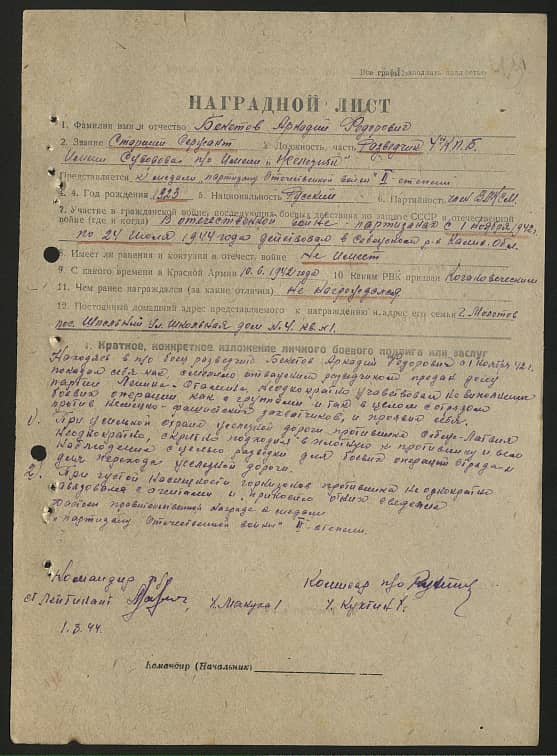 Все графы заполнять полностью
НАГРАДНОЙ ЛИСТ
1. Фамилия имя и отчество Бекетов Аркадий Федорович
2. Звание Старший Сержант 3. Должность, часть Разведчик 4й К.П.Б.
Имени Суворова п/о Имени „Неспокин"
Представляется к медали партизану Отечественной войны" II степени
4. Год рождения 1923 5. Национальность Русский 6. Партийность член ВЛКСМ.
7. Участие в гражданской войне, последующих боевых действиях по защите СССР и отечественной
войне (где и когда) В отечественной войне - партизаном с 1 ноября 1942г.
по 24 июля 1944 года действовал в р-е Обл.
8. Имеет ли ранения и контузии в отечест. войне Не имеет
9. С какого времени в Красной Армии 10.6.1942 года 10. Каким РВК призван Кагановическим
11. Чем ранее награждался (за какие отличия) Не награждался
12. Постоянный домашний адрес представляемого к награждению и адрес его семьи г. Молотов
пос. Школьный ул. Школьная дом № 4. кв. № 1.
1. Краткое, конкретное изложение личного боевого подвига или заслуг
Находясь в п/о боец разведчик Бекетов Аркадий Федорович с 1 Ноября 42 г.
показал себя как, смелым отважным разведчиком предан делу
партии Ленина-Сталина, неоднократно участвовал на выполнении
боевых операции как с группами и так в целом с отрядом
против Немецко-фашистских захватчиков, и проявил себя.
1). При усиленной охране железной дороги противника Латвия
Неоднократно, скрытно подходил вплотную к противнику и вел
наблюдения с целью разведки для боевых операции отрядам
для перехода железной дороги.
2. При густой насыщенности гарнизонов противника неоднократно
связывался с агентами и приносил от них сведения
Достоин правительственной награде к медали
"партизану Отечественной войны" II степени.
Командир п/о Комиссар п/о
ст Лейтенант /. / /. Кухтин /.
1.8.44.
Командир (Начальник)